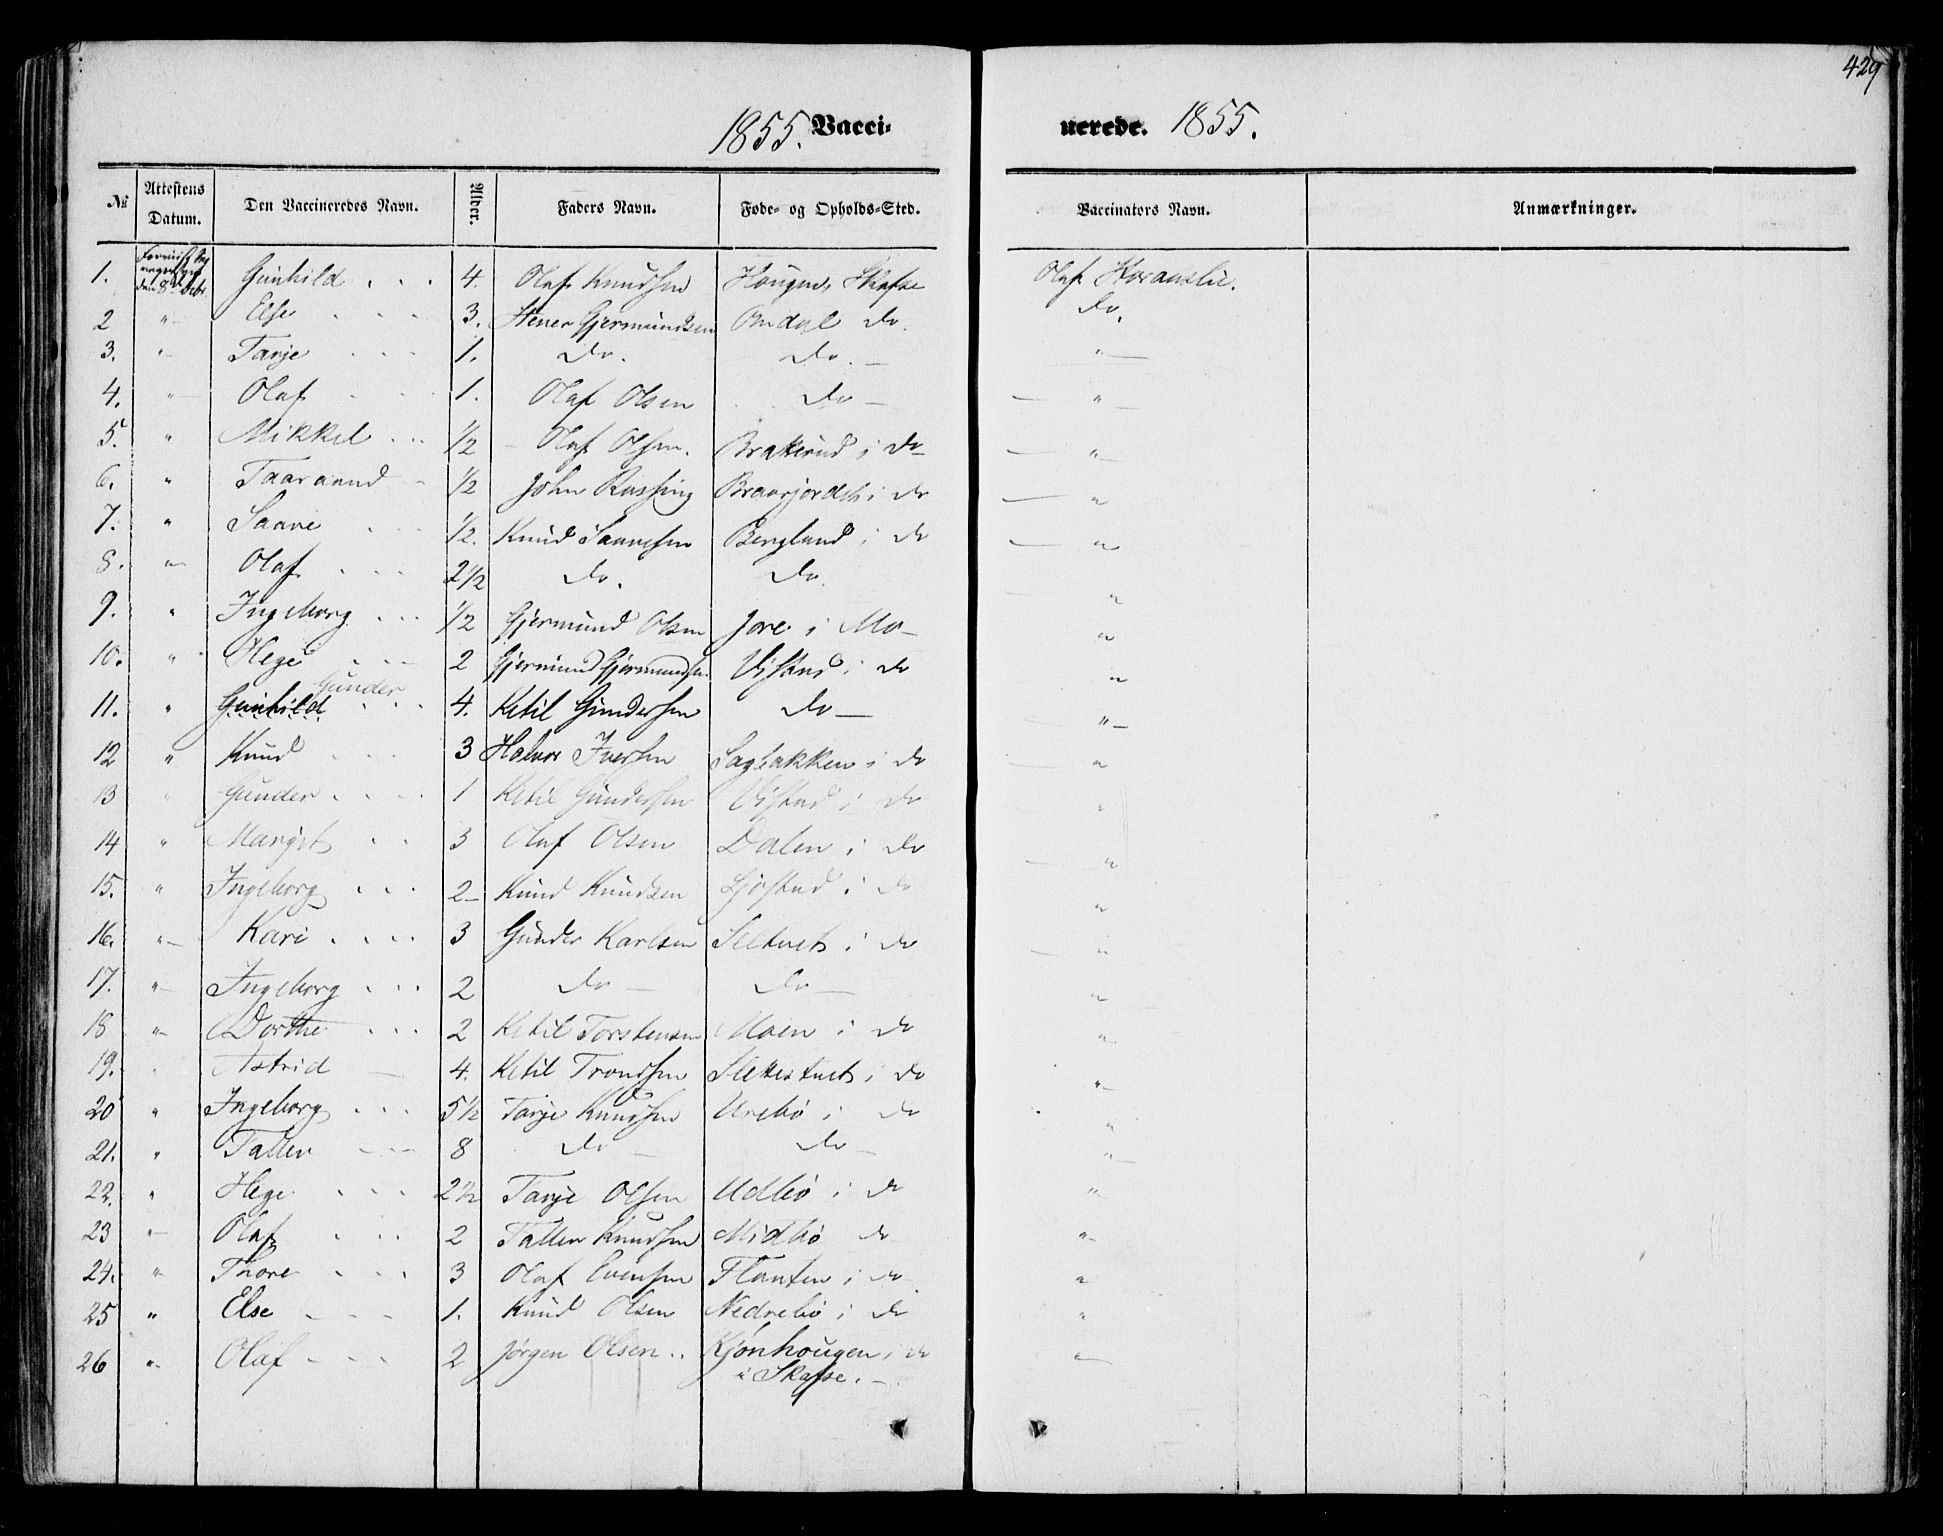 429
1855. Vacci- nerede. 1855.
№ Attestens Datum. Den Vaccineredes Navn. Alder. Faders Navn. Føde- og Opholds-Sted. Vaccinators Navn. Anmærkninger.
1. den 8 Gunhild . . . 4. Olaf Knudsen Hougen, Skafse Olaf
2 " Else . . . 3. Stener Gjermundsen do. do.
3. " Tarje . . . 1. do. do. — "
4. " Olaf . . . 1. Olaf Olsen do — "
5. " Mikkel . . . 1/2 Olaf Olsen. i do "
6. " Taraand 1/2 John i do "
7. " Saave . . . 1/2. Knud Saavesen Bergland i do "
8. " Olaf . . . 2 1/2 do. do. "
9. " Ingeborg . . . 1/2 Gjermund Olsen Jore i Mo — "
10. " Hege . . . 2 Gjermund Gjermundsen Vistad i do "
Gunder
11. " Gunhild . . . 4. Ketil Gundersen do — "
12 " Knud . . . 3 Halvor Iversen Sagbakken i do "
13 " Gunder . . . 1 Ketil Gundersen Vistad i do "
14 " Margit . . . 3 Olaf Olsen Dalen i do "
15. " Ingeborg . . . 2 Knud Knudsen Ljostad i do "
16. " Kari . . . 3 Gunder Karlsen i do "
17. " Ingeborg . . . 2 do — do — "
18 " Dorthe . . . 2 Ketil Torstensen Moen i do "
19. " Astrid — 4. Ketil Trondsen i do "
20 " Ingeborg . . . 5 1/2 Tarje Knudsen Urebø i do "
21. " Tallev — — 8 do — do — "
22. " Hege . . . 2 1/2 Tarje Olsen Udbø i do "
23 " Olaf . . . 2 Tallev Knudsen Midbø do "
24. " Thore . . . 3 Olaf Evensen Flauten i do "
25 " Else . . . 1. Knud Olsen Nedrebø i do "
26 " Olaf . . . 2 Jørgen Olsen . . Kjønhougen, i do "
i Skafse. —